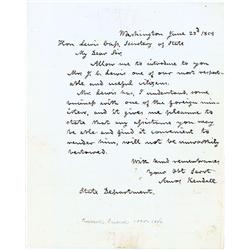 Washington June 23d 1858
Hon Lewis Cass, Secretary of State
My Dear Sir
Allow me to introduce to you
Mr. J. C. Lewis one of our most respect-
able and useful citizens.
Mr. Lewis has, I understand, some
business with one of the foreign min-
isters, and it gives me pleasure to
state that any assistance you may
be able and find it convenient to
render him, will not be unworthily
bestowed.
With kind remembrance,
Your Obt Servt
Amos Kendall
State Department.